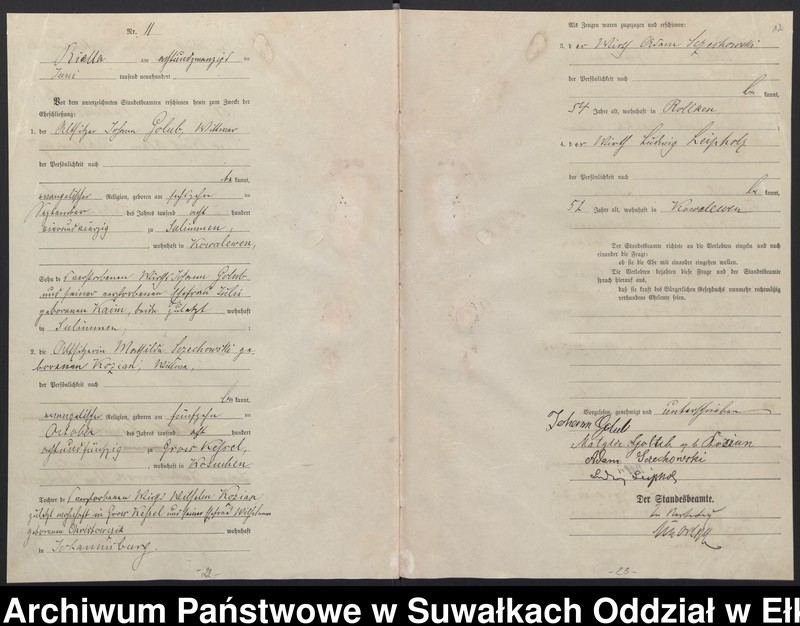 Nr. 11
Bialla am achtundzwanzigsten
Juni tausend neunhundert
Vor dem unterzeichneten Standesbeamten erschienen heute zum Zwecke der
Eheschließung:
1. der Altsitzer Johann Golub, Wittwer
der Persönlichkeit nach
be kannt,
evangelischer Religion, geboren am sechszehnten
September des Jahres tausend acht hundert
vierundvierzig zu Salimmen,
, wohnhaft in Kowalewen,
Sohn des verstorbenen Wirths Johann Golub
und seiner verstorbenen Ehefrau
geborenen Kaim, beide zuletzt wohnhaft
in Salimmen,
2. die Altsitzerin Mathilde Szechowski ge-
borenen Kozian, Wittwe,
der Persönlichkeit nach
be kannt,
evangelischer Religion, geboren am fünfzehnten
October des Jahres tausend acht hundert
achtundfünfzig zu Gross Kessel,
, wohnhaft in
Tochter des verstorbenen Wirths Wilhelm Kozian
zuletzt wohnhaft in Gross Kessel und seiner Ehefrau Wilhelmine
geborenen wohnhaft
in Johannisburg.
- 22 -
Als Zeugen waren zugezogen und erschienen:
3. der Wirth Adam Szechowski
der Persönlichkeit nach
be kannt,
54 Jahre alt, wohnhaft in Rollken
4. der Wirth Ludwig Leipholz
der Persönlichkeit nach
be kannt,
52 Jahre alt, wohnhaft in Kowalewen
Der Standesbeamte richtete an die Verlobten einzeln und nach
einander die Frage:
ob sie die Ehe mit einander eingehen wollen.
Die Verlobten bejahten diese Frage und der Standesbeamte
sprach hierauf aus,
daß sie kraft des Bürgerlichen Gesetzbuchs nunmehr rechtmäßig
verbundene Eheleute seien.
Vorgelesen, genehmigt und unterschrieben
Johann Golub
geb Kozian
Adam Szechowski
Ludwig Leipholz
Der Standesbeamte.
In Vertretung
- 23 -
Archiwum Państwowe w Suwałkach Oddział w Ełk